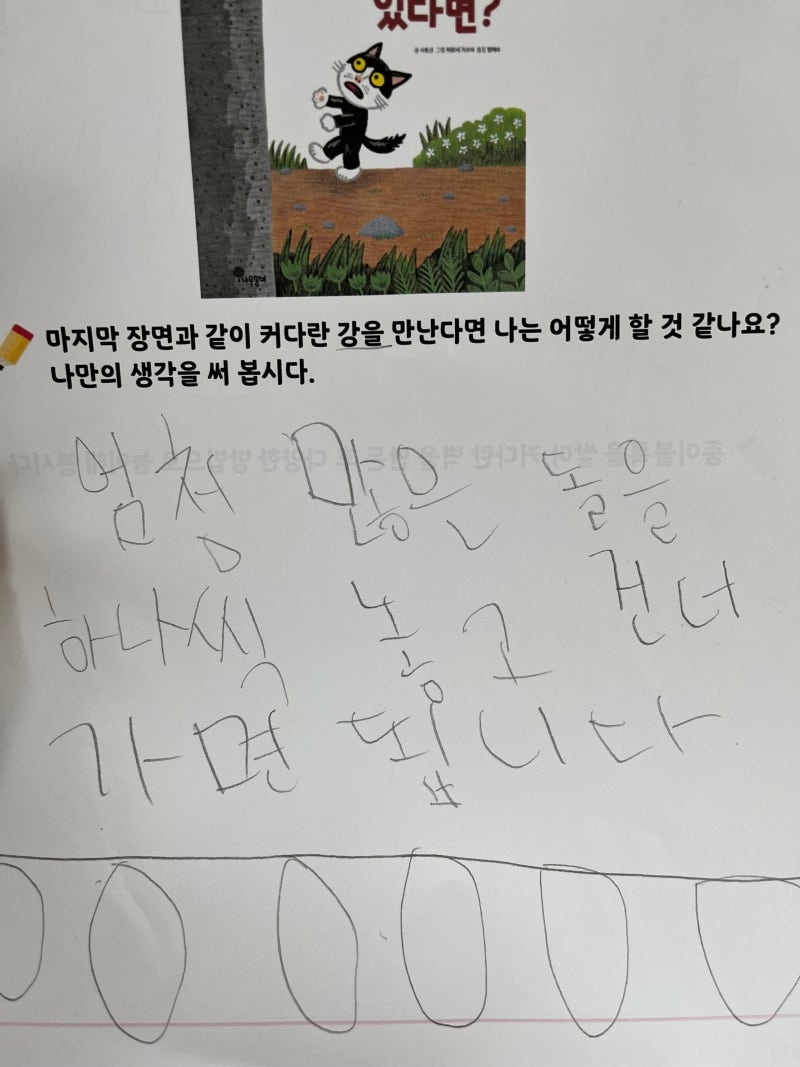 있다면?
마지막 장면과 같이 커다란 강을 만난다면 나는 어떻게 할 것 같나요?
나만의 생각을 써 봅시다.
엄청 많은 돌을
하나씩 놓고 건너
가면 됩니다